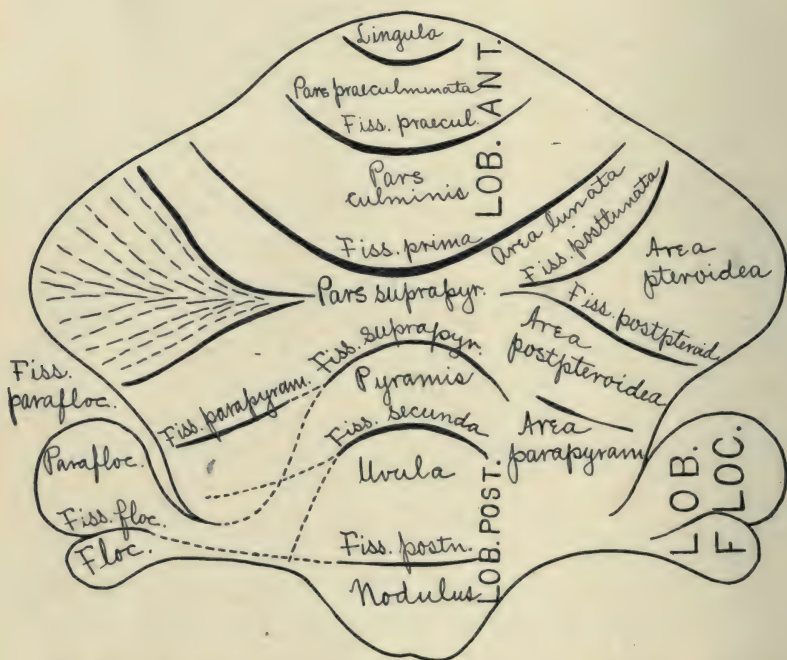 Lingula
Pars praeculminata
Fiss. praecul.
LOB. ANT.
Pars
culminis
Fiss. prima
Area lunata
Fiss. postlunata
Area
pteroidea
Pars suprapyr.
Fiss. postpteroid.
Fiss. suprapyr.
Area
postpteroidea
Pyramis
Fiss.
parafloc.
Fiss. parapyram.
Fiss. secunda
Area
parapyram.
Parafloc.
Uvula
LOB. POST.
LOB.
FLOC.
Fiss. floc.
Floc.
Fiss. postn.
Nodulus